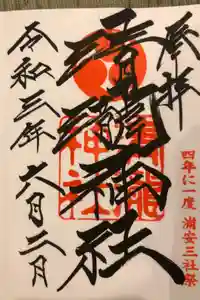 奉拝
四年に一度 浦安三社祭
清瀧神社
令和三年六月二日